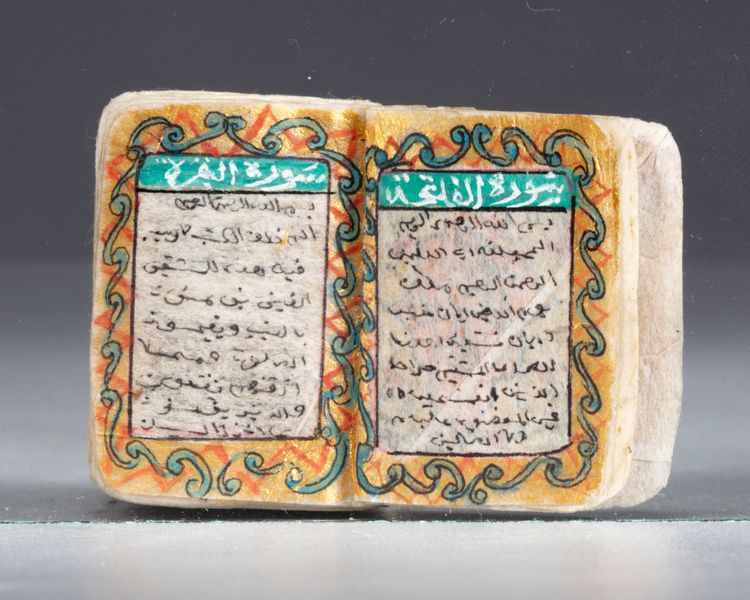 سورة الفاتحة
بسم الله الرحمن الرحيم
الحمد لله رب العلمين
الرحمن الرحيم ملك
يوم الدين اياك نعبد
و اياك نستعين اهدنا
الصراط المستقيم صراط
الذين انعمت عليهم
غير المغضوب عليهم
ولا الضالين
سورة البقرة
بسم الله الرحمن الرحيم
الم ذلك الكتب لا ريب
فيه هدى للمتقين
الذين يؤمنون
بالغيب ويقيمون
الصلوة ومما
رزقنهم ينفقون
والذين يؤمنون